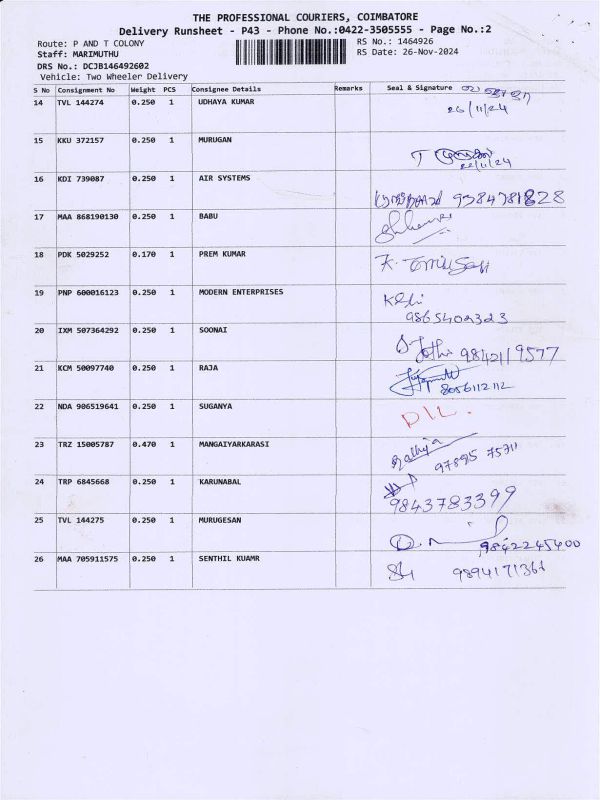 THE PROFESSIONAL COURIERS, COIMBATORE
Delivery Runsheet - P43 - Phone No.:0422-3505555 - Page No.:2
Route: P AND T COLONY RS No.: 1464926
Staff: MARIMUTHU RS Date: 26-Nov-2024
DRS No.: DCJB146492602
Vehicle: Two Wheeler Delivery
S No Consignment No Weight PCS Consignee Details Remarks Seal & Signature
14 TVL 144274 0.250 1 UDHAYA KUMAR
26/11/24
15 KKU 372157 0.250 1 MURUGAN
16 KDI 739087 0.250 1 AIR SYSTEMS
9384781828
17 MAA 868190130 0.250 1 BABU
18 PDK 5029252 0.170 1 PREM KUMAR
19 PNP 600016123 0.250 1 MODERN ENTERPRISES
9865402323
20 IXM 507364292 0.250 1 SOONAI
S. Jothi 9842119577
21 KCM 50097740 0.250 1 RAJA
8056112112
22 NDA 906519641 0.250 1 SUGANYA
D/L.
23 TRZ 15005787 0.470 1 MANGAIYARKARASI
97895 75311
24 TRP 6845668 0.250 1 KARUNABAL
9843783399
25 TVL 144275 0.250 1 MURUGESAN
9842245400
26 MAA 705911575 0.250 1 SENTHIL KUAMR
9894171361